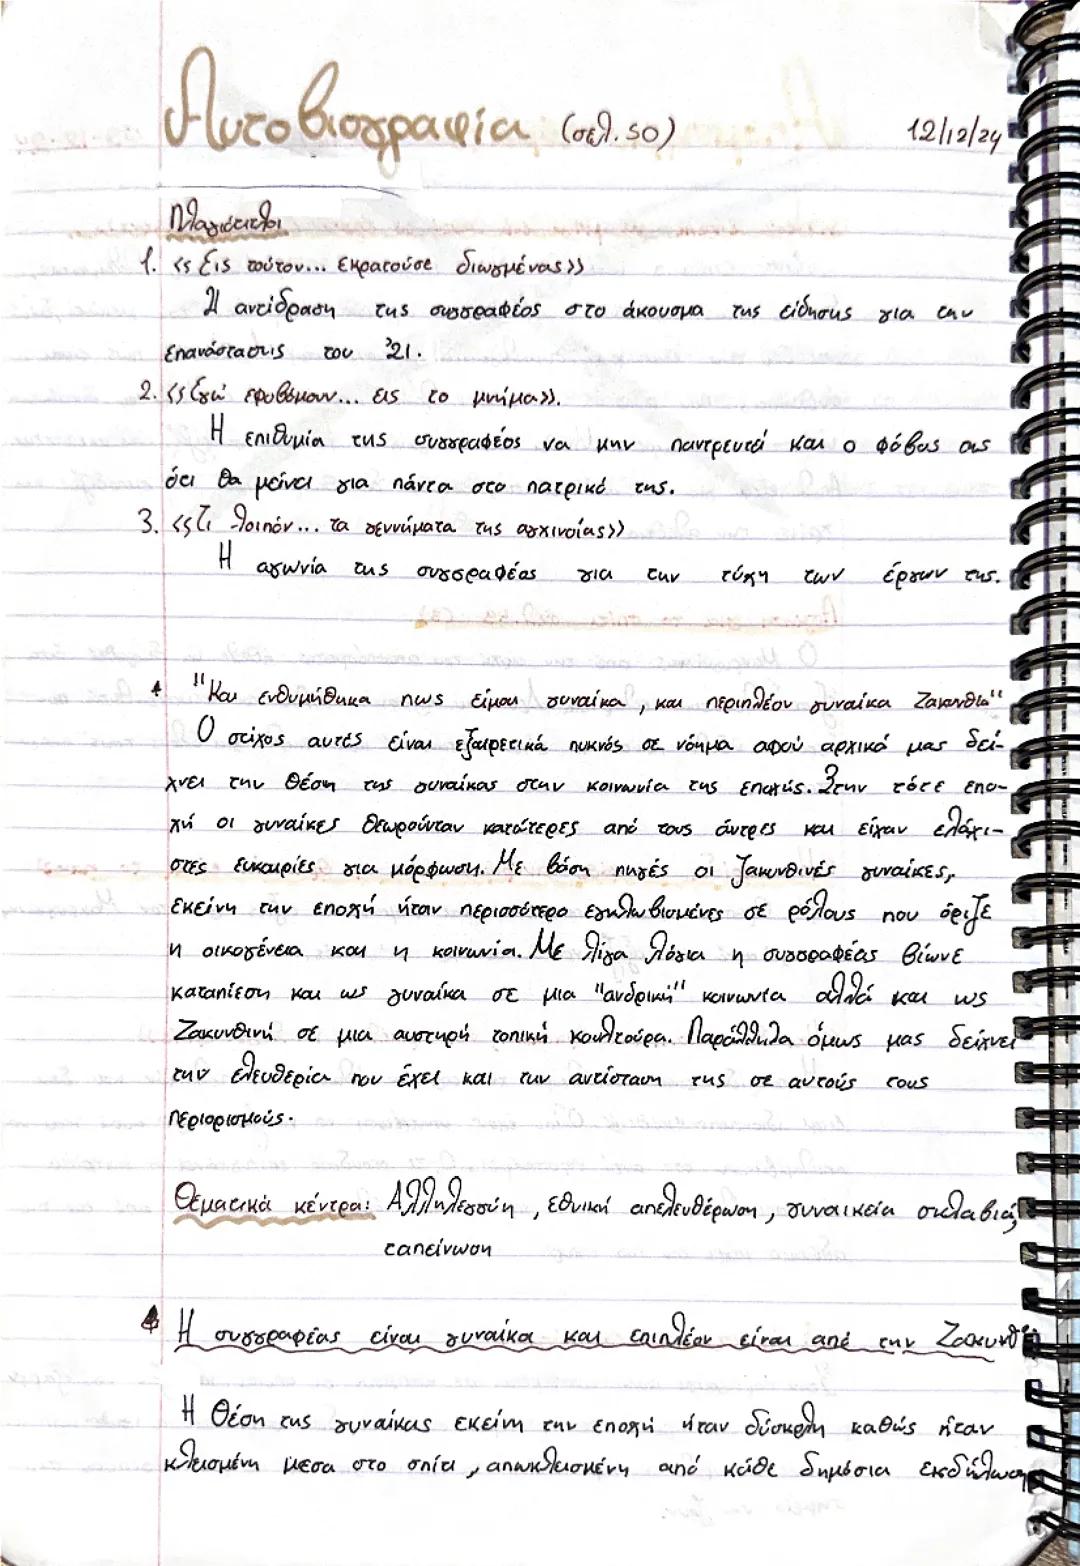 Αυτοβιογραφία (σελ. 50) 12/12/24
Πλαγιότιτλοι
1. «Εις τούτον... εκρατούσε διωγμένας»
Η αντίδραση της συγγραφέος στο άκουσμα της είδησης για την
επανάστασης του '21.
2. «Εγώ εφοβόμουν... εις το μνήμα».
Η επιθυμία της συγγραφέος να μην παντρευτεί και ο φόβος της
ότι θα μείνει για πάντα στο πατρικό της.
3. «Τι λοιπόν... τα γεννήματα της αγχινοίας»
Η αγωνία της συγγραφέας για την τύχη των έργων της.
* "Και ενθυμήθηκα πως είμαι γυναίκα, και περιπλέον γυναίκα Ζακυνθία"
Ο στίχος αυτός είναι εξαιρετικά πυκνός σε νόημα αφού αρχικά μας δεί-
χνει την θέση της γυναίκας στην κοινωνία της εποχής. Στην τότε επο-
χή οι γυναίκες θεωρούνταν κατώτερες από τους άντρες και είχαν ελάχι-
στες ευκαιρίες για μόρφωση. Με βάση πηγές οι Ζακυνθινές γυναίκες,
εκείνη την εποχή ήταν περισσότερο εγκλωβισμένες σε ρόλους που όριζε
η οικογένεια και η κοινωνία. Με λίγα λόγια η συγγραφέας βίωνε
καταπίεση και ως γυναίκα σε μια "ανδρική" κοινωνία αλλά και ως
Ζακυνθινή σε μια αυστηρή τοπική κουλτούρα. Παράλληλα όμως μας δείχνει
την ελευθερία που έχει και την αντίσταση της σε αυτούς τους
περιορισμούς.
Θεματικά κέντρα: Αλληλεγγύη, εθνική απελευθέρωση, γυναικεία σκλαβιά,
ταπείνωση
* Η συγγραφέας είναι γυναίκα και επιπλέον είναι από την Ζακυνθ
Η θέση της γυναίκας εκείνη την εποχή ήταν δύσκολη καθώς ήταν
κλεισμένη μεσα στο σπίτι, αποκλεισμένη από κάθε δημόσια εκδήλωση